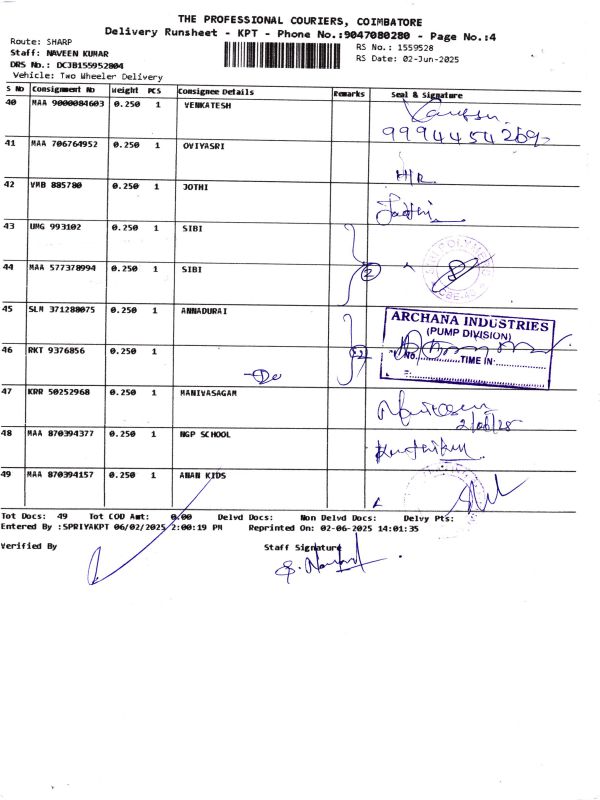 THE PROFESSIONAL COURIERS, COIMBATORE
Delivery Runsheet - KPT - Phone No.:9047080280 - Page No.:4
Route: SHARP
Staff: NAVEEN KUMAR
DRS No.: DCJB155952804
Vehicle: Two Wheeler Delivery
RS No.: 1559528
RS Date: 02-Jun-2025
S No Consignment No Weight PCS Consignee Details Remarks Seal & Signature
40 MAA 9000084603 0.250 1 VENKATESH
9994454269
41 MAA 706764952 0.250 1 OVIYASRI
H/R
42 VMB 885780 0.250 1 JOTHI
Jothi
43 UMG 993102 0.250 1 SIBI
44 MAA 577378994 0.250 1 SIBI
2
45 SLM 371288075 0.250 1 ANNADURAI
ARCHANA INDUSTRIES
(PUMP DIVISION)
No. TIME IN
46 RKT 9376856 0.250 1
2
Do
47 KRR 50252968 0.250 1 MANIVASAGAM
48 MAA 870394377 0.250 1 NGP SCHOOL
49 MAA 870394157 0.250 1 ANAN KIDS
Tot Docs: 49 Tot COD Amt: 0.00 Delvd Docs: Non Delvd Docs: Delvy Pts:
Entered By :SPRIYAKPT 06/02/2025 2:00:19 PM Reprinted On: 02-06-2025 14:01:35
Verified By Staff Signature